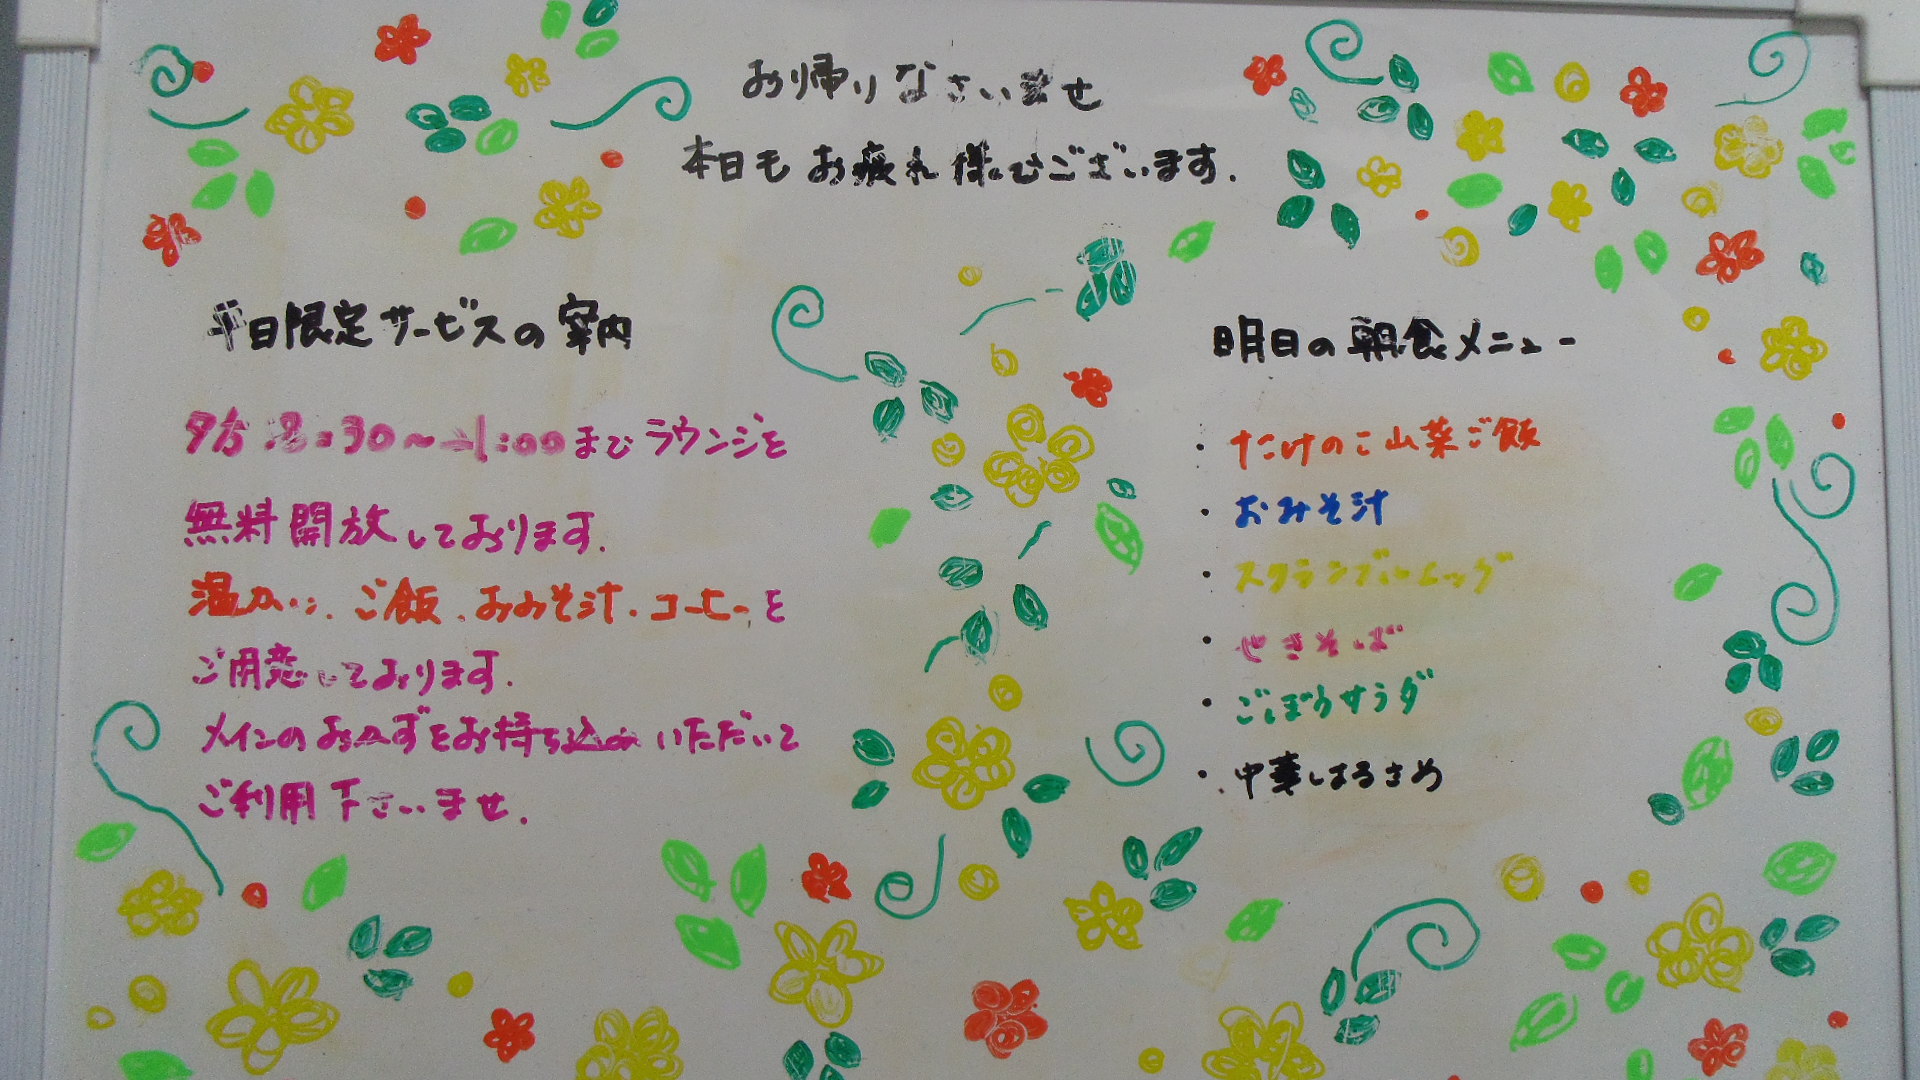 お帰りなさいませ
本日もお疲れ様でございます.
平日限定サービスの案内
夕方:8:30～ 1:00までラウンジを
無料開放しております.
温かい、ご飯、おみそ汁・コーヒーを
ご用意しております.
メインのおかずをお持ち込みいただいて
ご利用下さいませ.
明日の朝食メニュー
・たけのこ山菜ご飯
・おみそ汁
・スクランブルエッグ
・やきそば
・ごぼうサラダ
・中華はるさめ